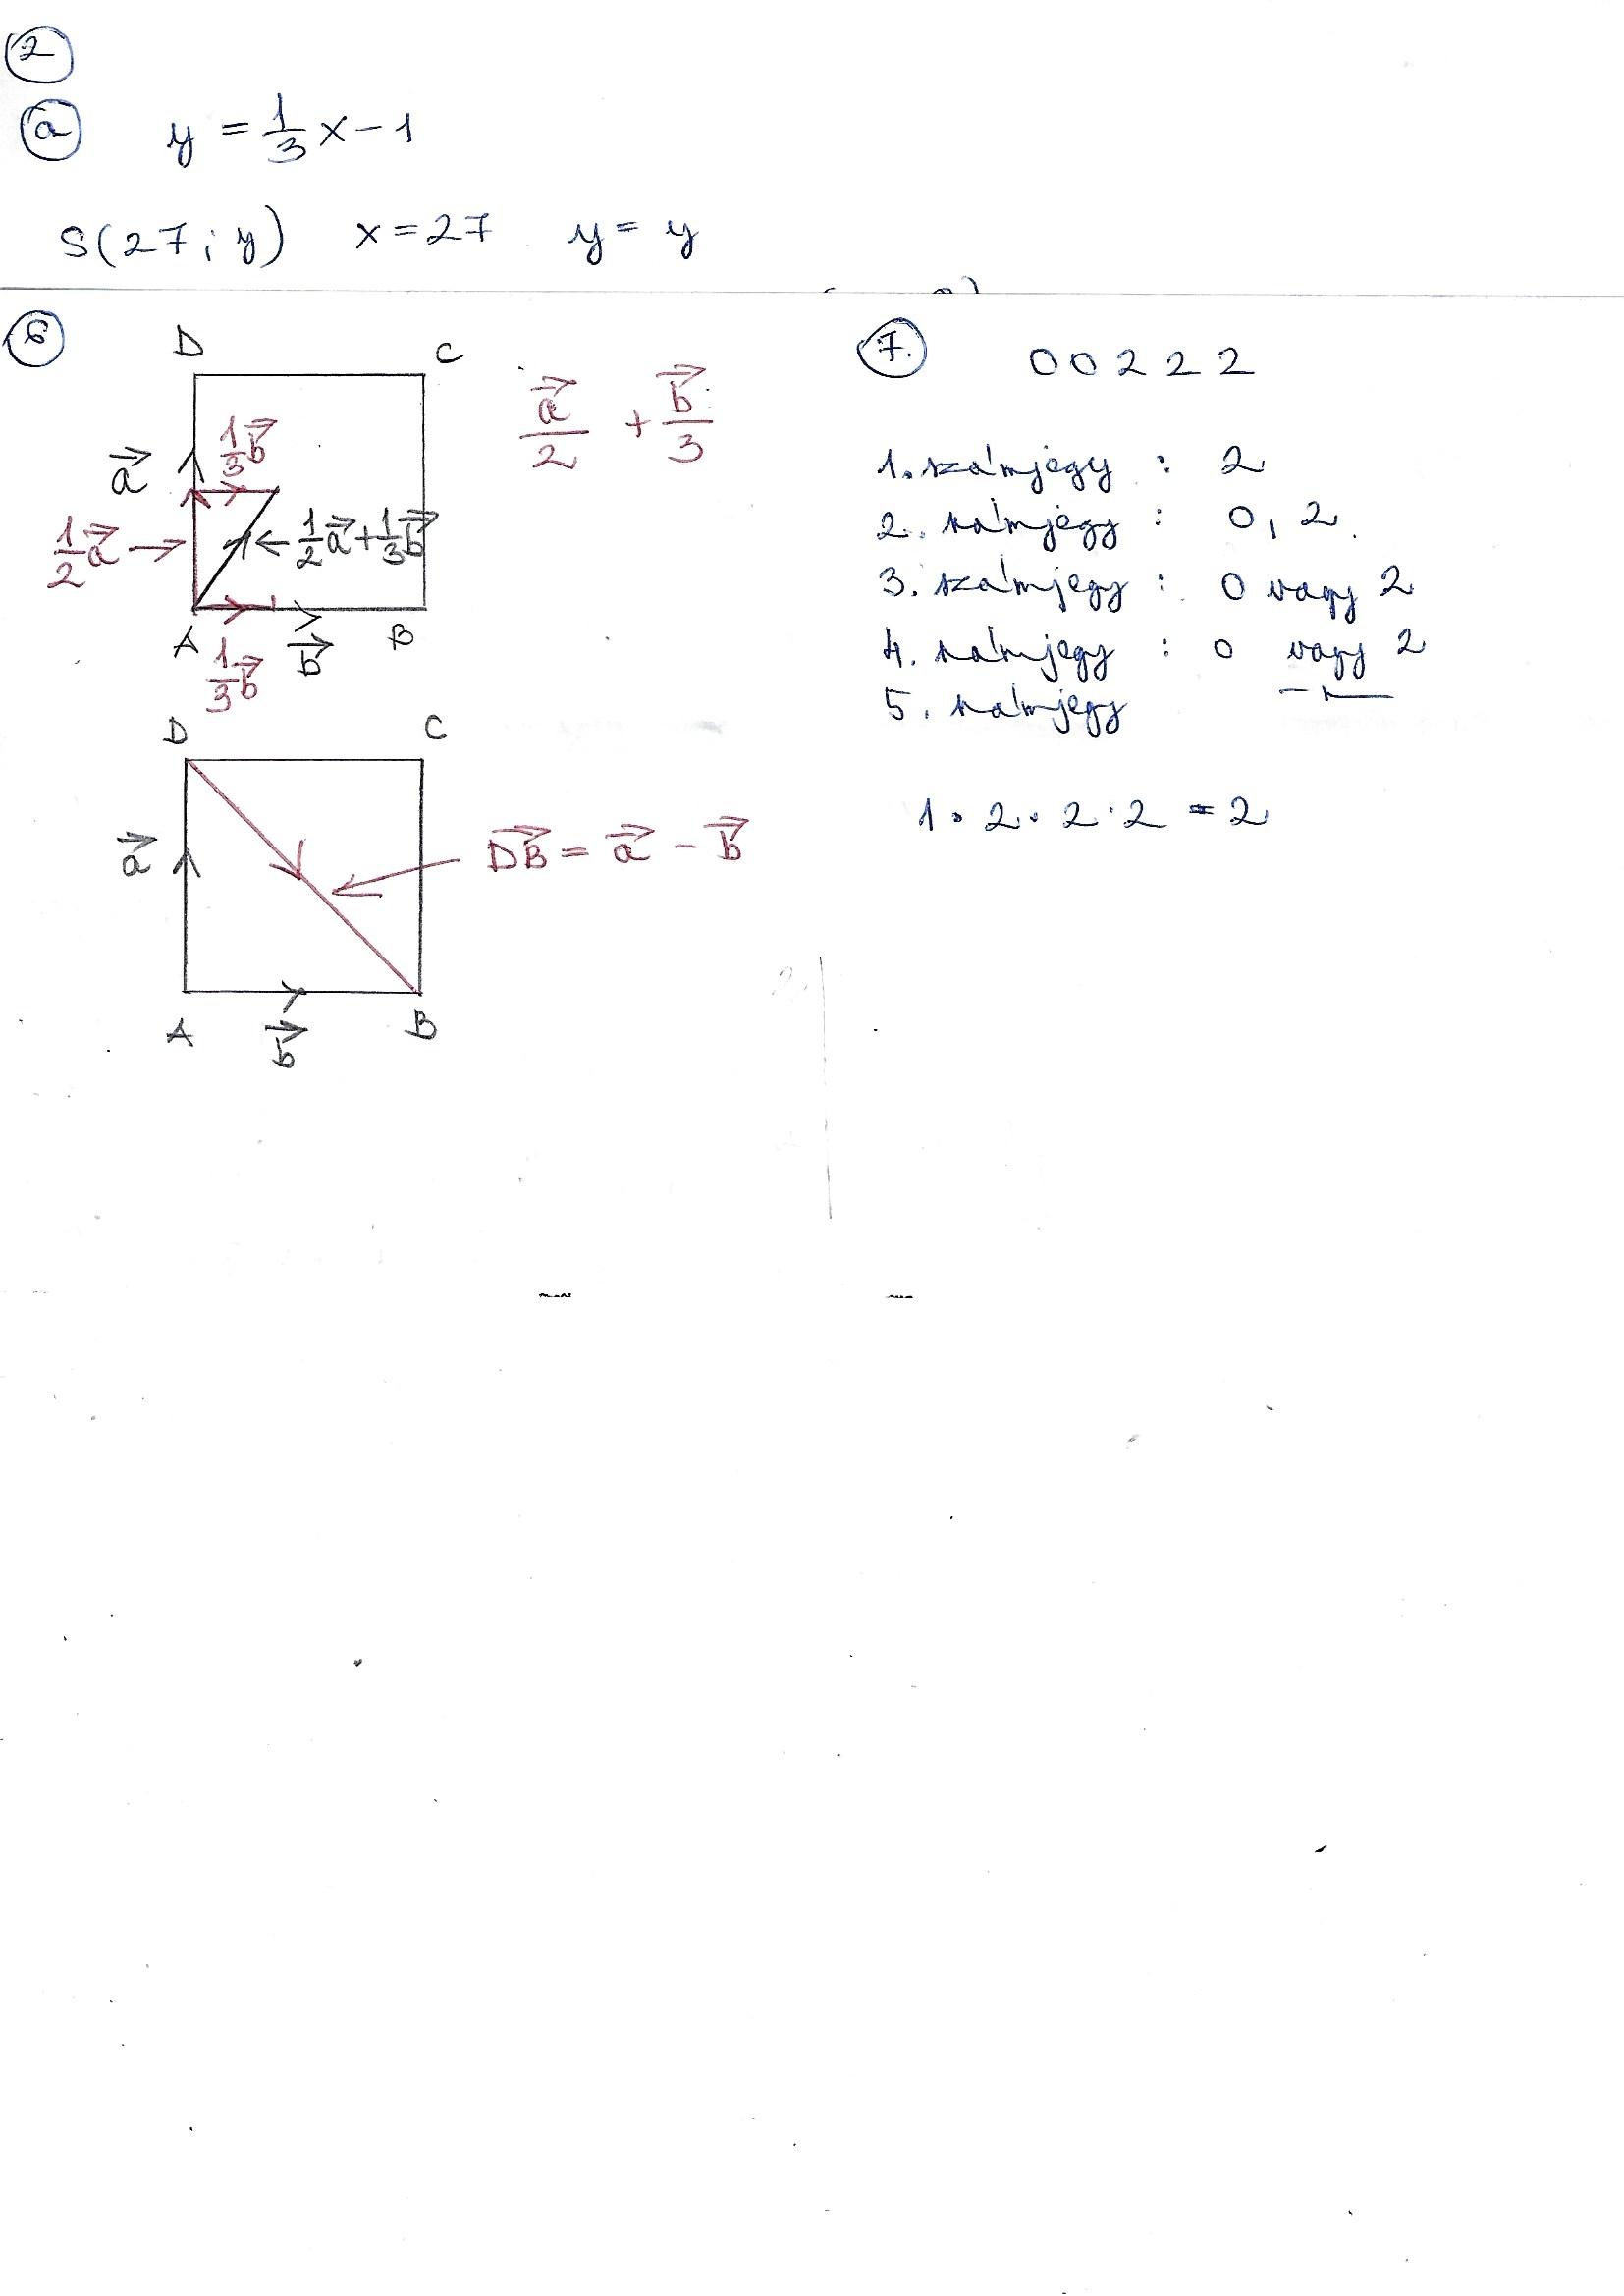 2
a y = 1/3 x - 1
S(27; y) x = 27 y = y
6
D C
a⃗ 1/3 b⃗
1/2 a⃗ → ← 1/2 a⃗ + 1/3 b⃗
A b⃗ B
1/3 b⃗
a⃗/2 + b⃗/3
D C
a⃗ DB⃗ = a⃗ - b⃗
A b⃗ B
7. 00222
1. számjegy : 2
2. számjegy : 0, 2
3. számjegy : 0 vagy 2
4. számjegy : 0 vagy 2
5. számjegy —"—
1 · 2 · 2 · 2 = 2